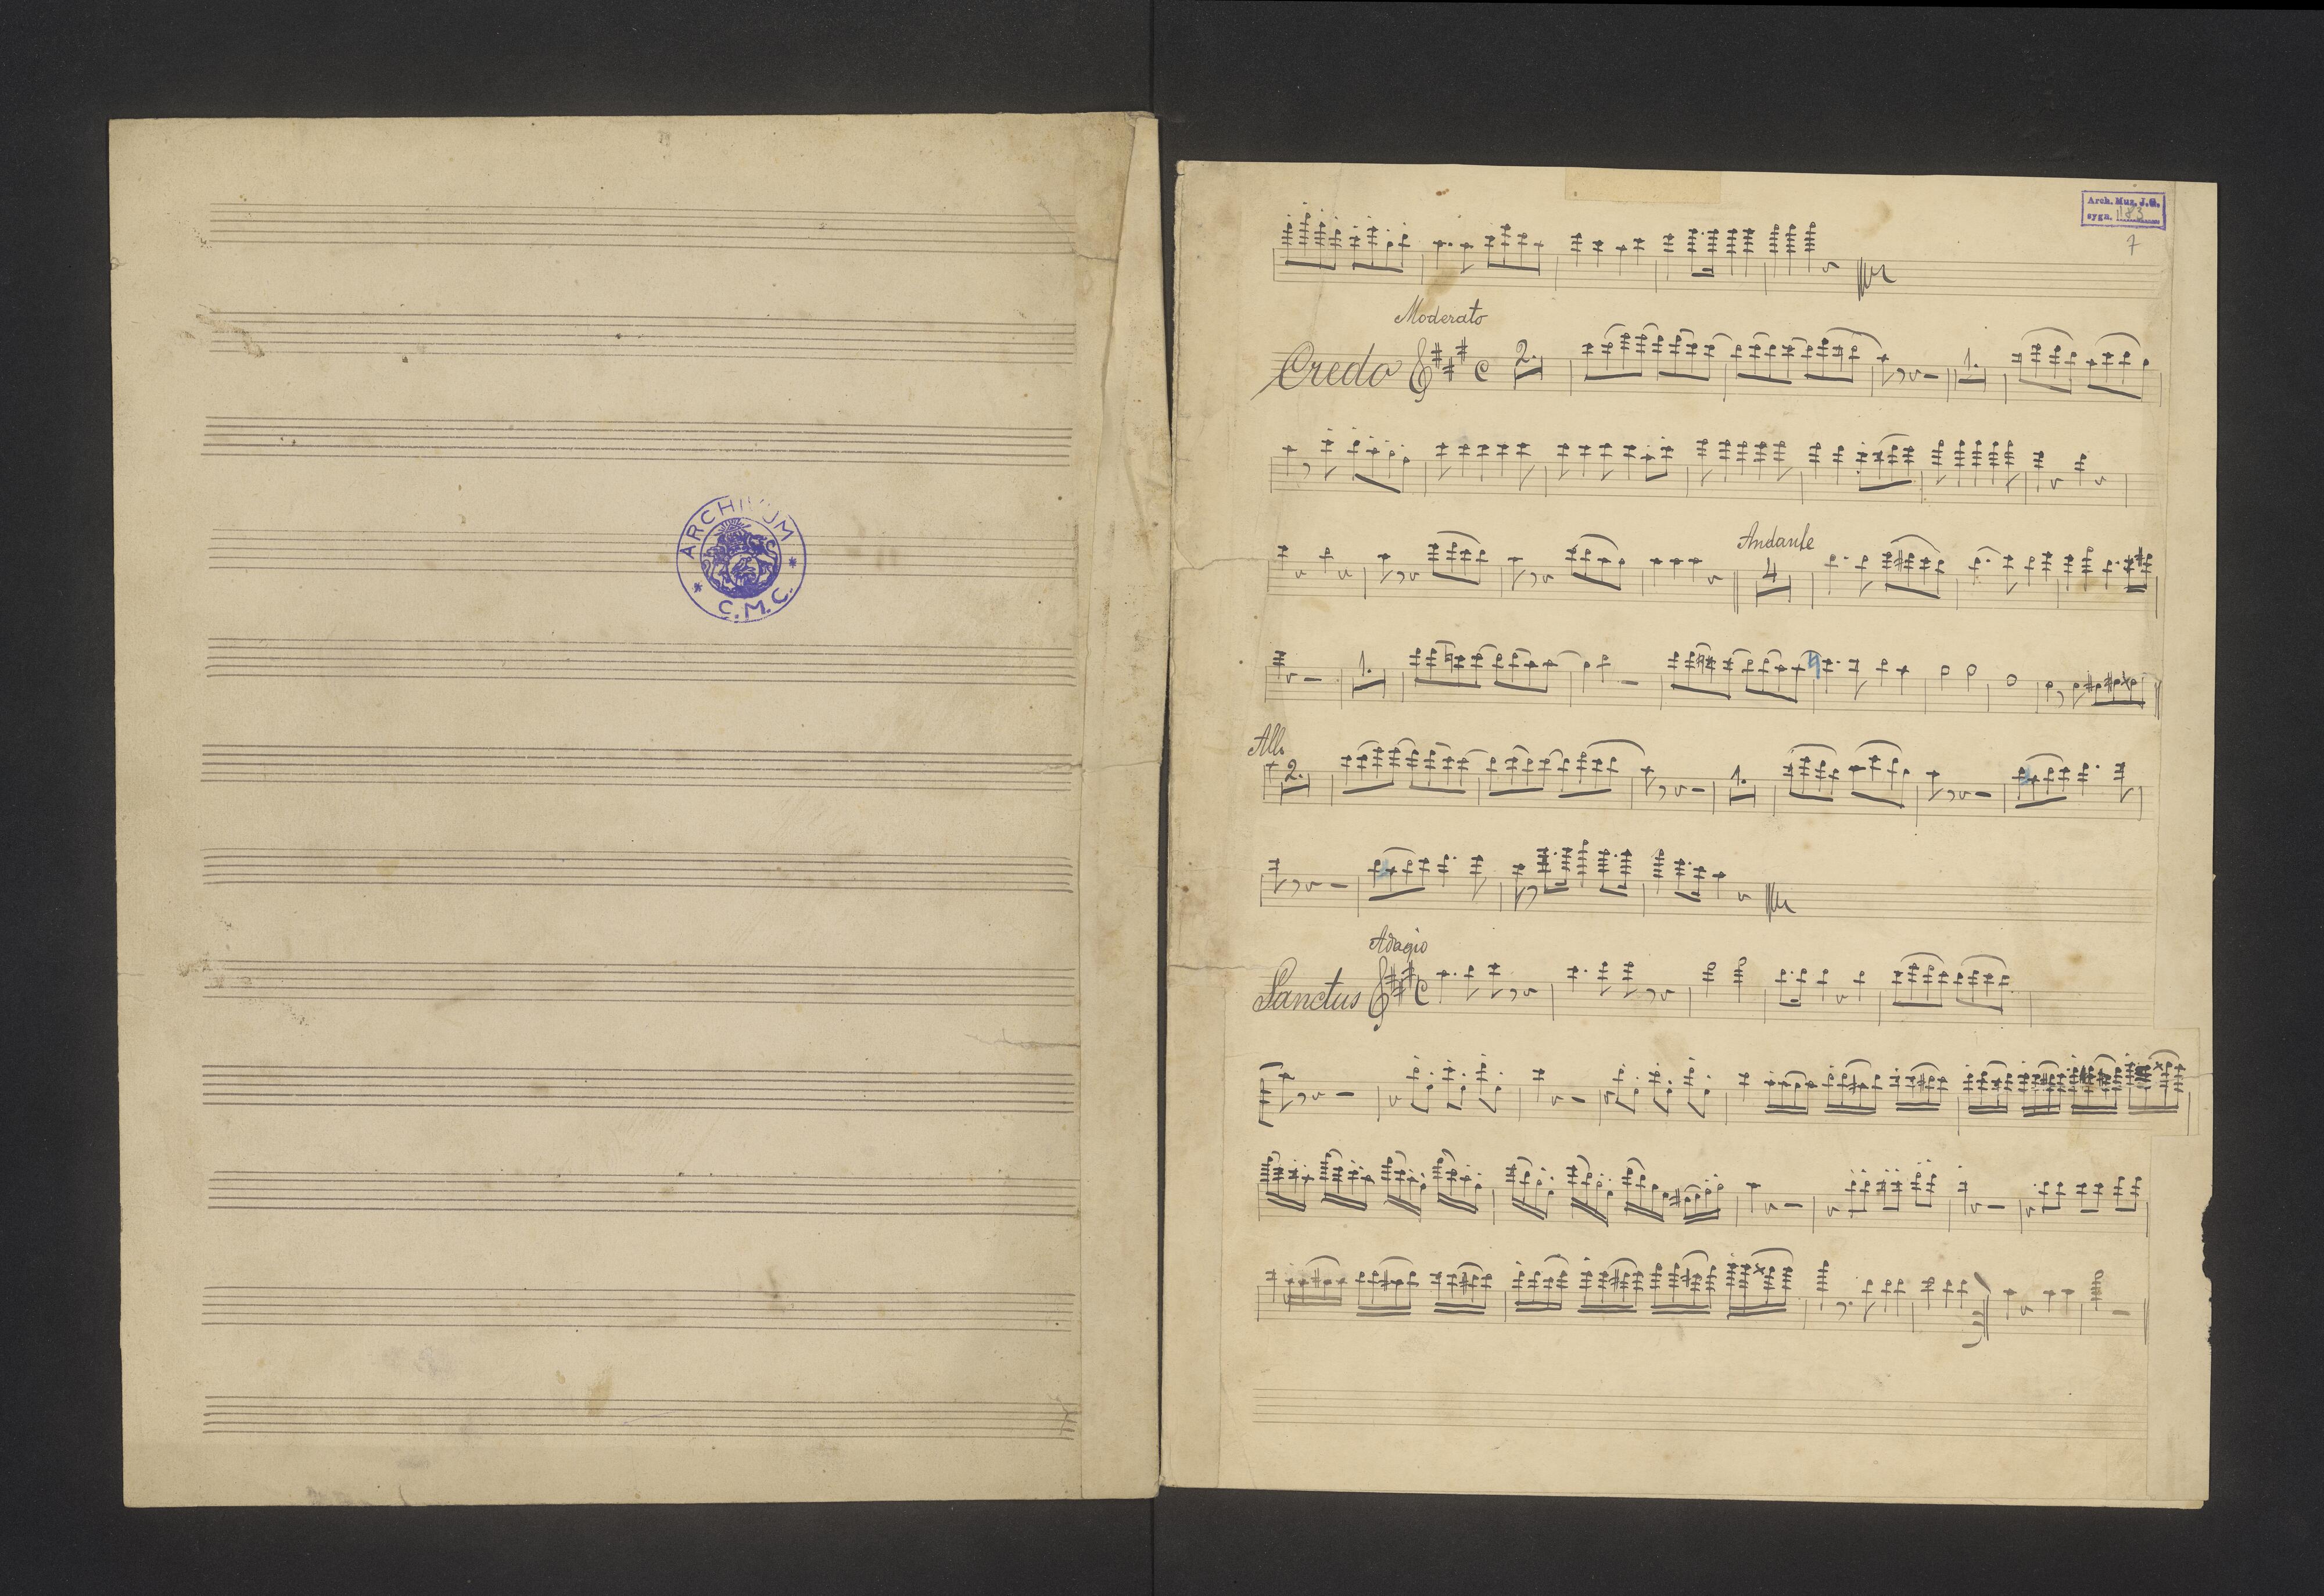 ARCHIVUM
C.M.C.
Arch. Muz. J.G.
sygn. 183
7
Moderato
Credo
2.
1.
Andante
4
1.
All.
2.
1.
Adagio
Sanctus